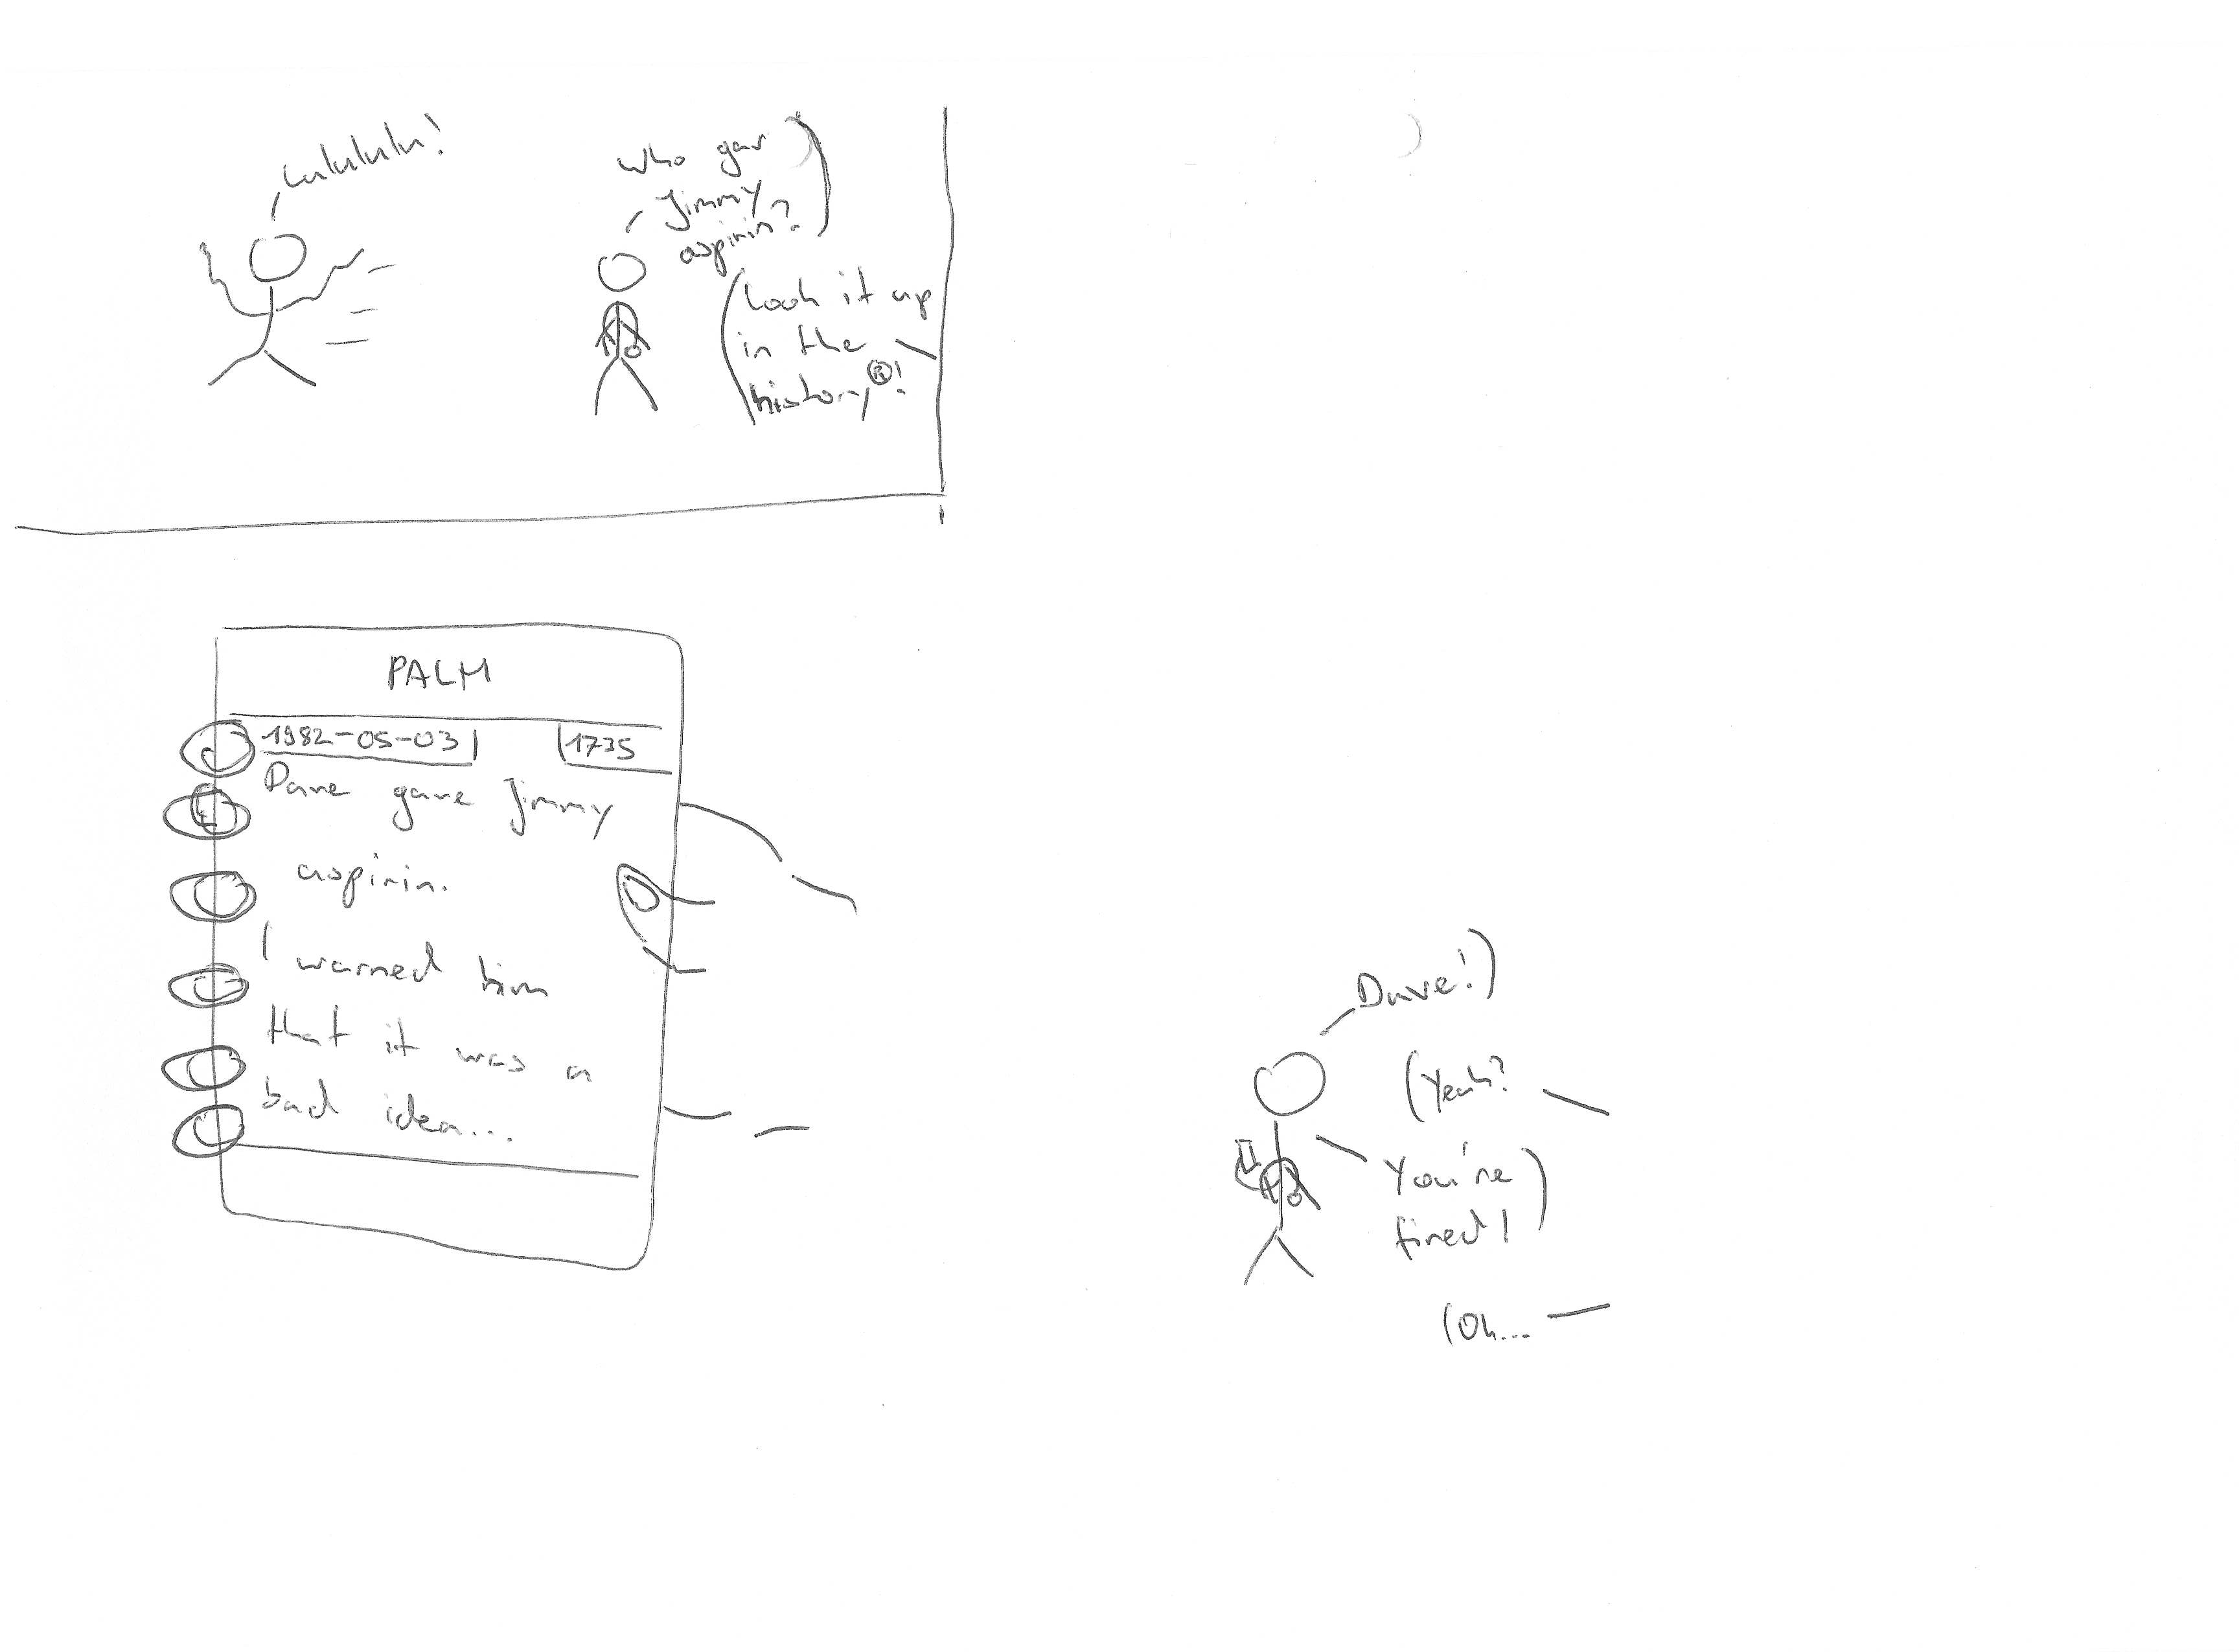 Lulululu!
Who gav
Jimmy
aspirin?
Look it up
in the
history®!
PALM
1982-05-03
1735
Dave gave Jimmy
aspirin.
I warned him
that it was a
bad idea...
Dave!
Yeah?
You're
fired!
Oh...